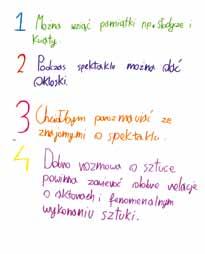 1 Można wziąć pamiątki np. słodycze i
kwiaty.
2 Podczas spektaklu można dać
okloski.
3 Chciałbym porozmawiać ze
znajomymi o spektaklu.
4 Dobra rozmowa o sztuce
powinna zawierać dobre relacje
o aktorach i fenomenalnym
wykonaniu sztuki.